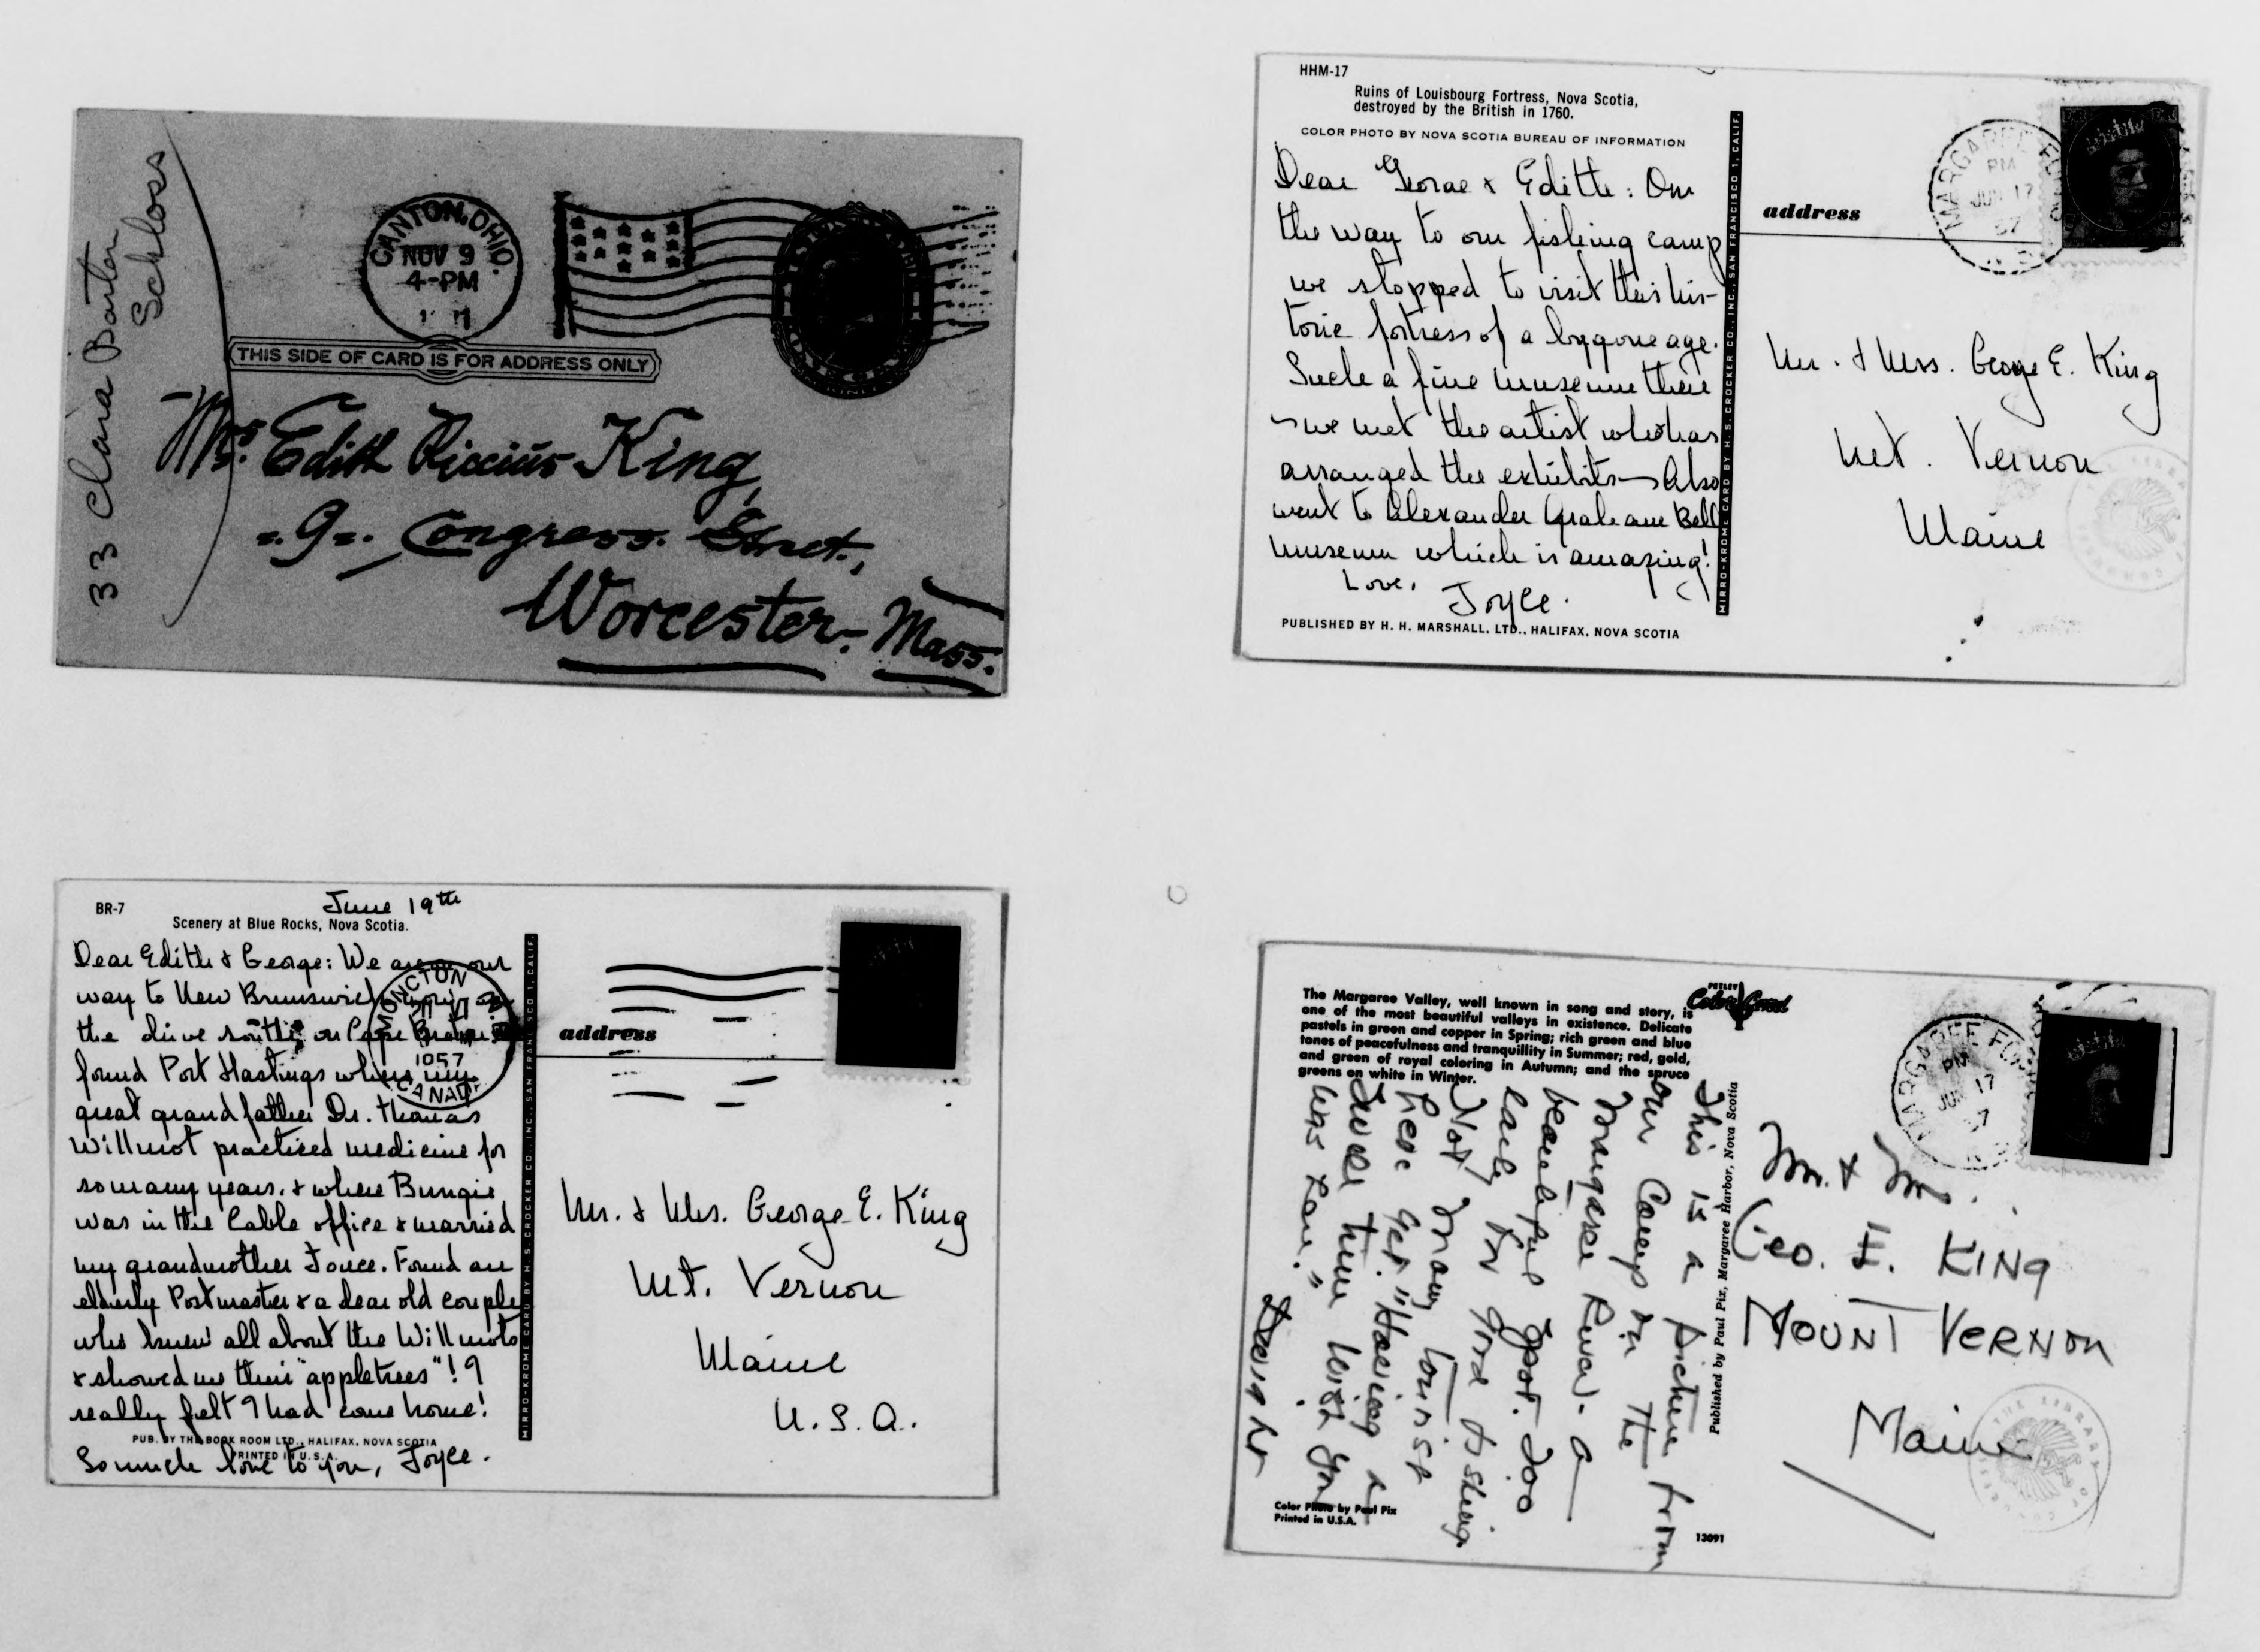 33 Clara Barton
Schloss
CANTON, OHIO.
NOV 9
4-PM
THIS SIDE OF CARD IS FOR ADDRESS ONLY
Mrs. Edith Riccius King,
9 Congress Street,
Worcester, Mass.
HHM-17
Ruins of Louisbourg Fortress, Nova Scotia,
destroyed by the British in 1760.
COLOR PHOTO BY NOVA SCOTIA BUREAU OF INFORMATION
Dear George & Edith: On
the way to our fishing camp
we stopped to visit this his-
toric fortress of a bygone age.
Such a fine museum there
we met the artist who has
arranged the exhibits Also
went to Alexander Graham Bell
museum which is amazing!
Love,
Joyce.
PUBLISHED BY H. H. MARSHALL, LTD., HALIFAX, NOVA SCOTIA
MIRRO-KROME CARD BY H. S. CROCKER CO., INC., SAN FRANCISCO 1, CALIF.
address
MARGAREE
PM
JUN 17
57
Mr. & Mrs. George E. King
Mt. Vernon
Maine
BR-7
June 19th
Scenery at Blue Rocks, Nova Scotia.
Dear Edith & George: We are on our
way to New Brunswick
the drive south on Cape Breton
found Port Hastings where my
great grandfather Dr. Thomas
Willmot practiced medicine for
so many years, & where Bungie
was in the Cable office & married
my grandmother Joyce. Found an
elderly Postmaster & a dear old couple
who knew all about the Willmots
& showed me their "appletrees"! I
really felt I had come home!
PUB. BY THE BOOK ROOM LTD., HALIFAX, NOVA SCOTIA
PRINTED IN U.S.A.
So much love to you, Joyce.
MIRRO-KROME CARD BY H. S. CROCKER CO. INC., SAN FRANCISCO 1, CALIF.
MONCTON
1957
CANADA
address
Mr. & Mrs. George E. King
Mt. Vernon
Maine
U. S. A.
The Margaree Valley, well known in song and story, is
one of the most beautiful valleys in existence. Delicate
pastels in green and copper in Spring; rich green and blue
tones of peacefulness and tranquillity in Summer; red, gold,
and green of royal coloring in Autumn; and the spruce
greens on white in Winter.
PETLEY
Color Card
This is a picture from
our Camp on the
Margaree River - a
beautiful spot. Too
early for good fishing
Not many tourists
here yet. "Having a
swell time wish you
was here."
Color Photo by Paul Pix
Printed in U.S.A.
13091
Published by Paul Pix, Margaree Harbor, Nova Scotia
MARGAREE
PM
JUN 17
57
Mr. & Mrs.
Geo. E. KING
MOUNT VERNON
Maine